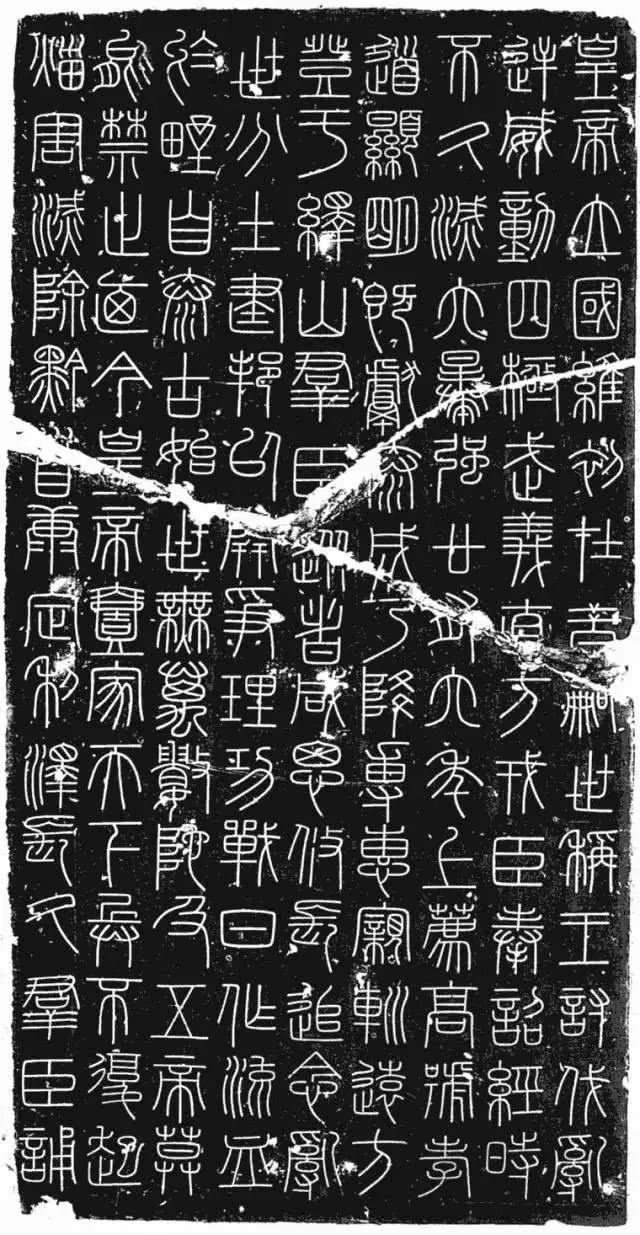 皇帝立國維初在昔嗣世稱王討伐亂
逆威動四極武義直方戎臣奉詔經時
不久滅六暴強廿有六年上薦高號孝
道顯明既獻泰成乃降專惠親𨊠遠方
登于繹山羣臣從者咸思攸長追念亂
世分土建邦以開爭理功戰日作流血
於野自泰古始世無萬數陀及五帝莫
能禁止迺今皇帝壹家天下兵不復起
災害滅除黔首康定利澤長久羣臣誦